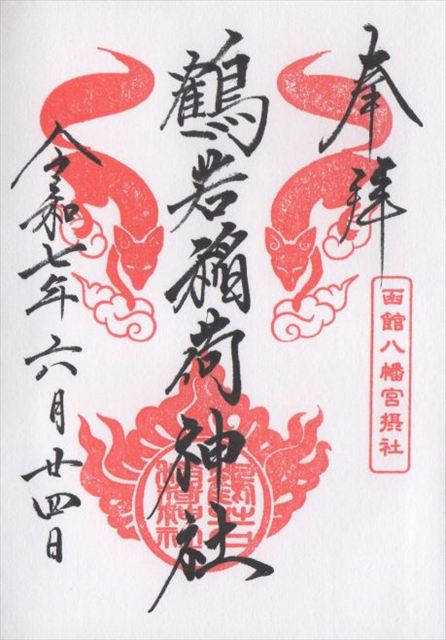 奉拝
函館八幡宮摂社
鶴若稲荷神社
令和七年六月廿四日